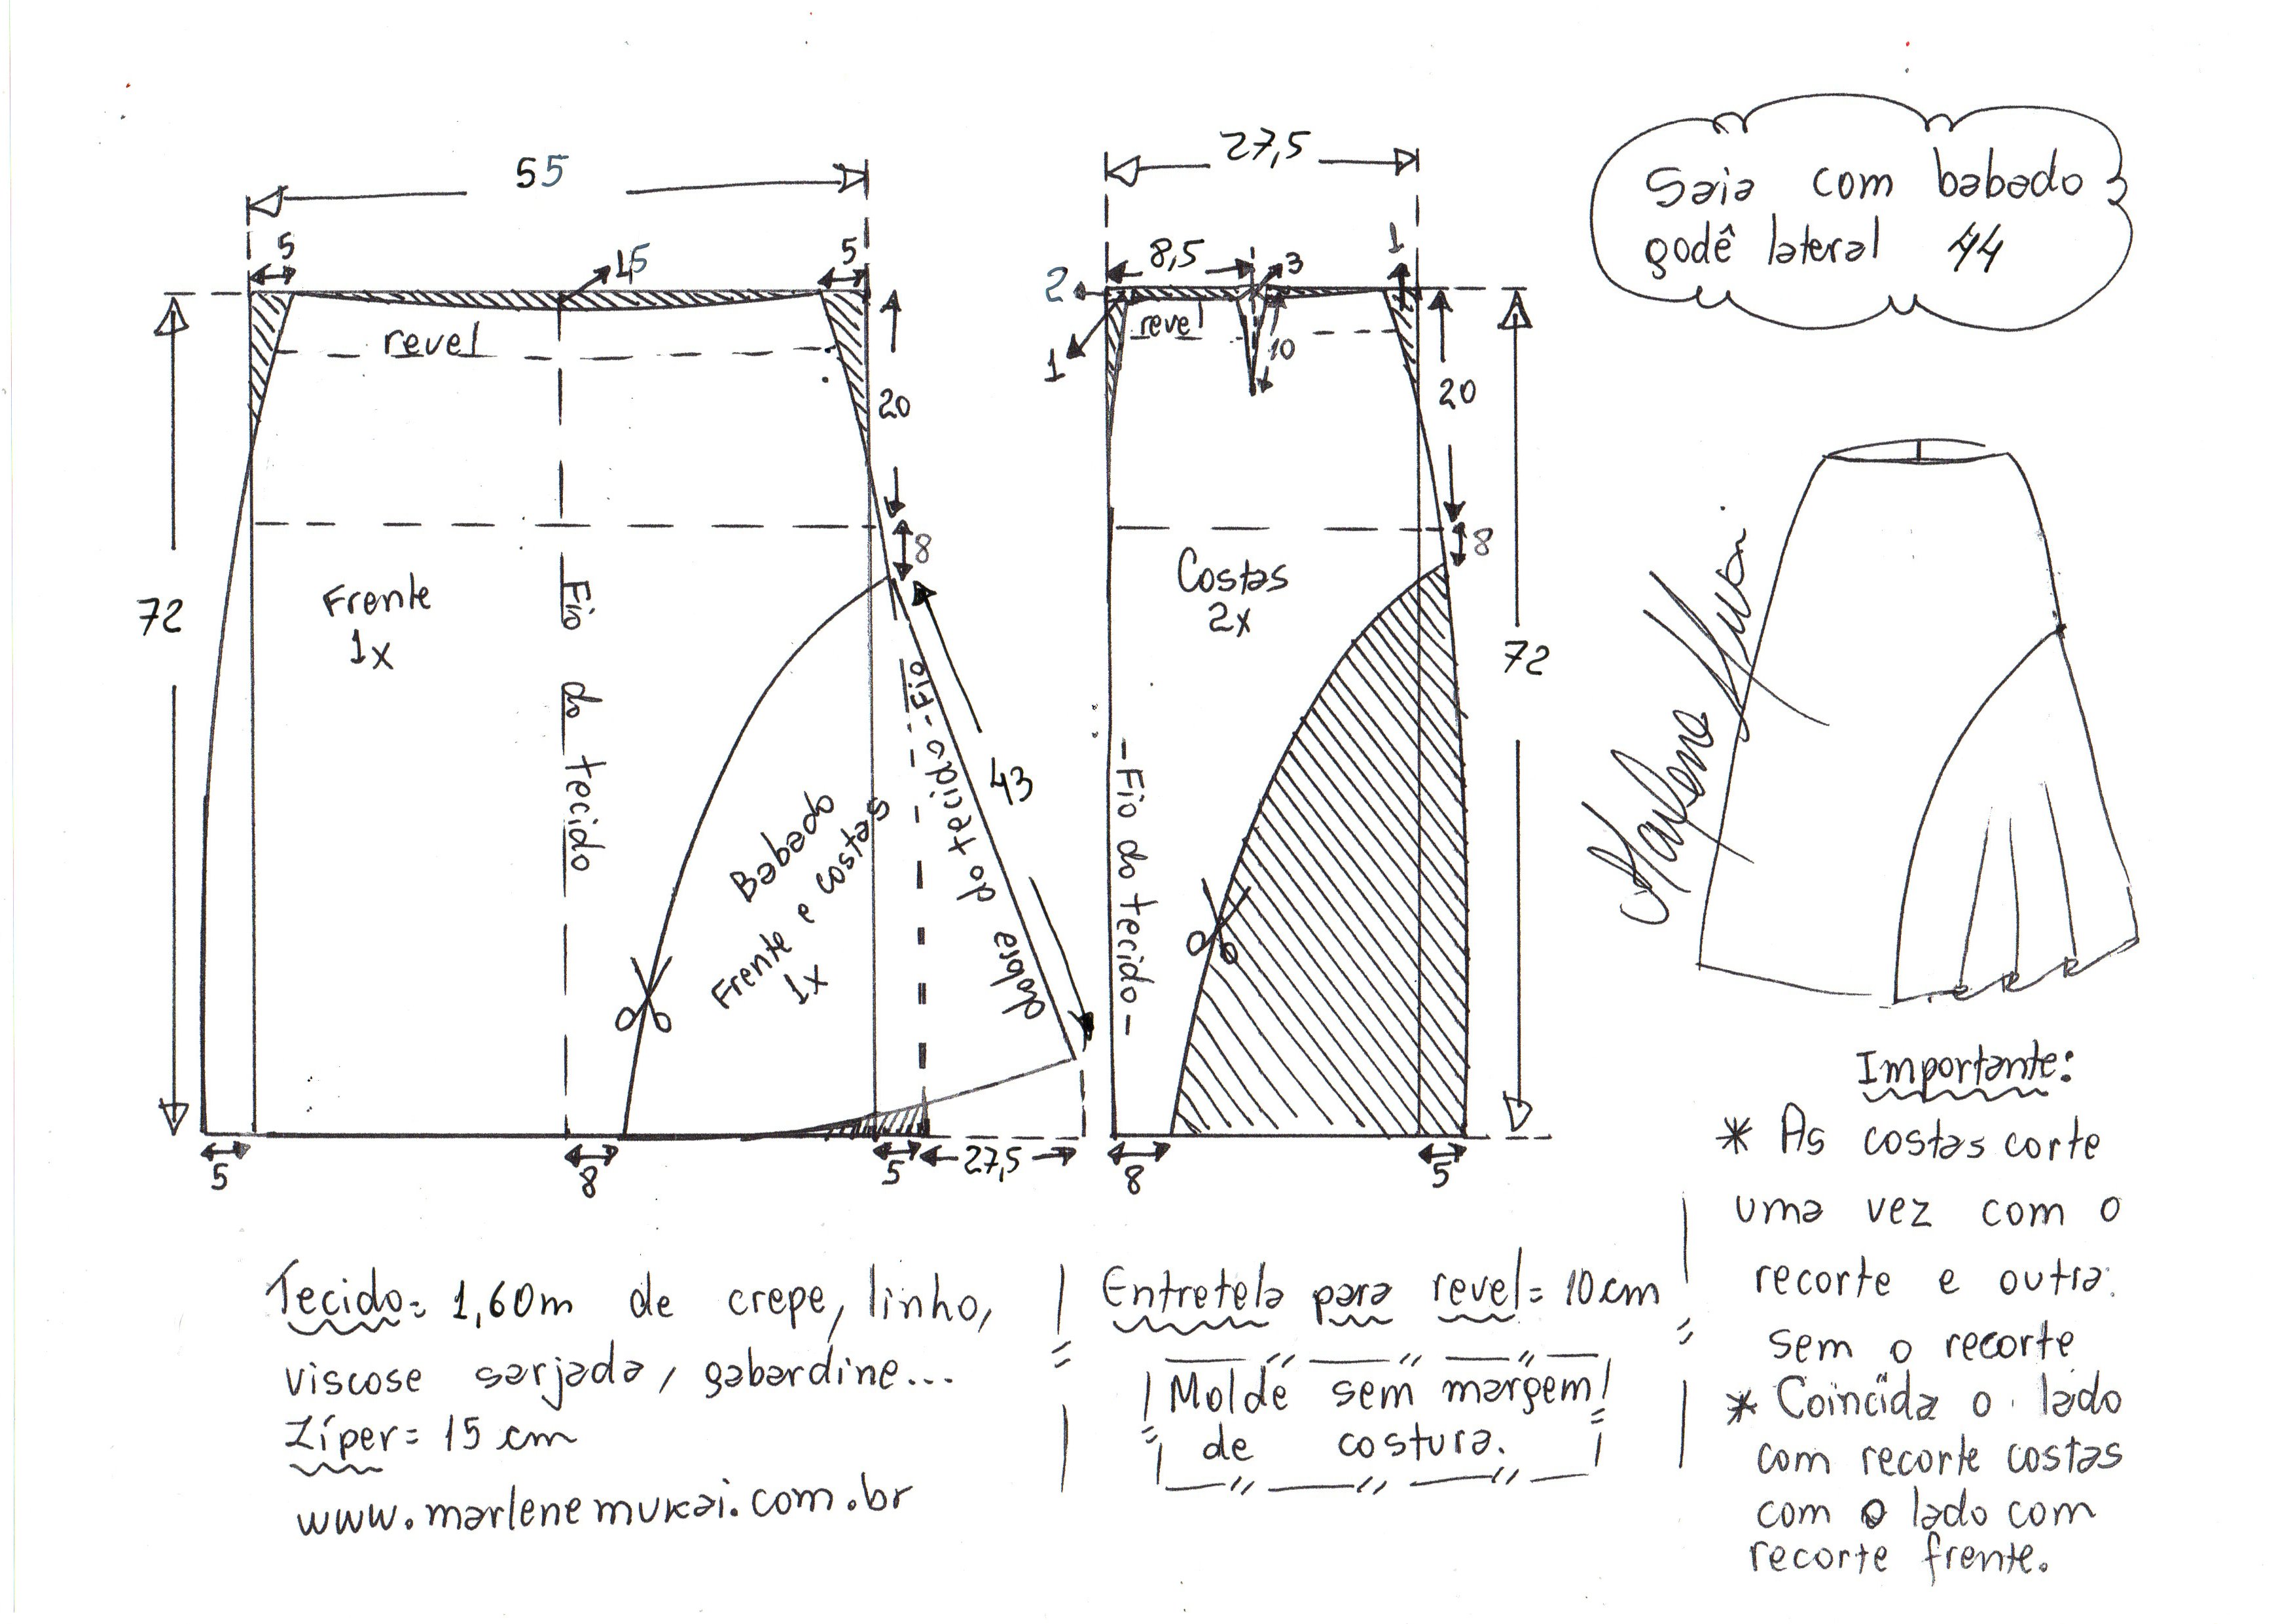 55
5
15
5
revel
20
8
72
Frente
1x
Fio do tecido
Babado
Frente e costas
1x
Fio do tecido
dobra
43
5
8
5
27,5
27,5
2
8,5
3
1
1
revel
10
20
8
Costas
2x
72
-Fio do tecido-
8
5
Saia com babado
godê lateral 44
Marlene Mukai
Importante:
* As costas corte
uma vez com o
recorte e outra
sem o recorte
* Coincida o lado
com recorte costas
com o lado com
recorte frente.
Tecido= 1,60m de crepe, linho,
viscose sarjada, gabardine...
Zíper= 15 cm
www.marlenemukai.com.br
Entretela para revel= 10cm
Molde sem margem
de costura.